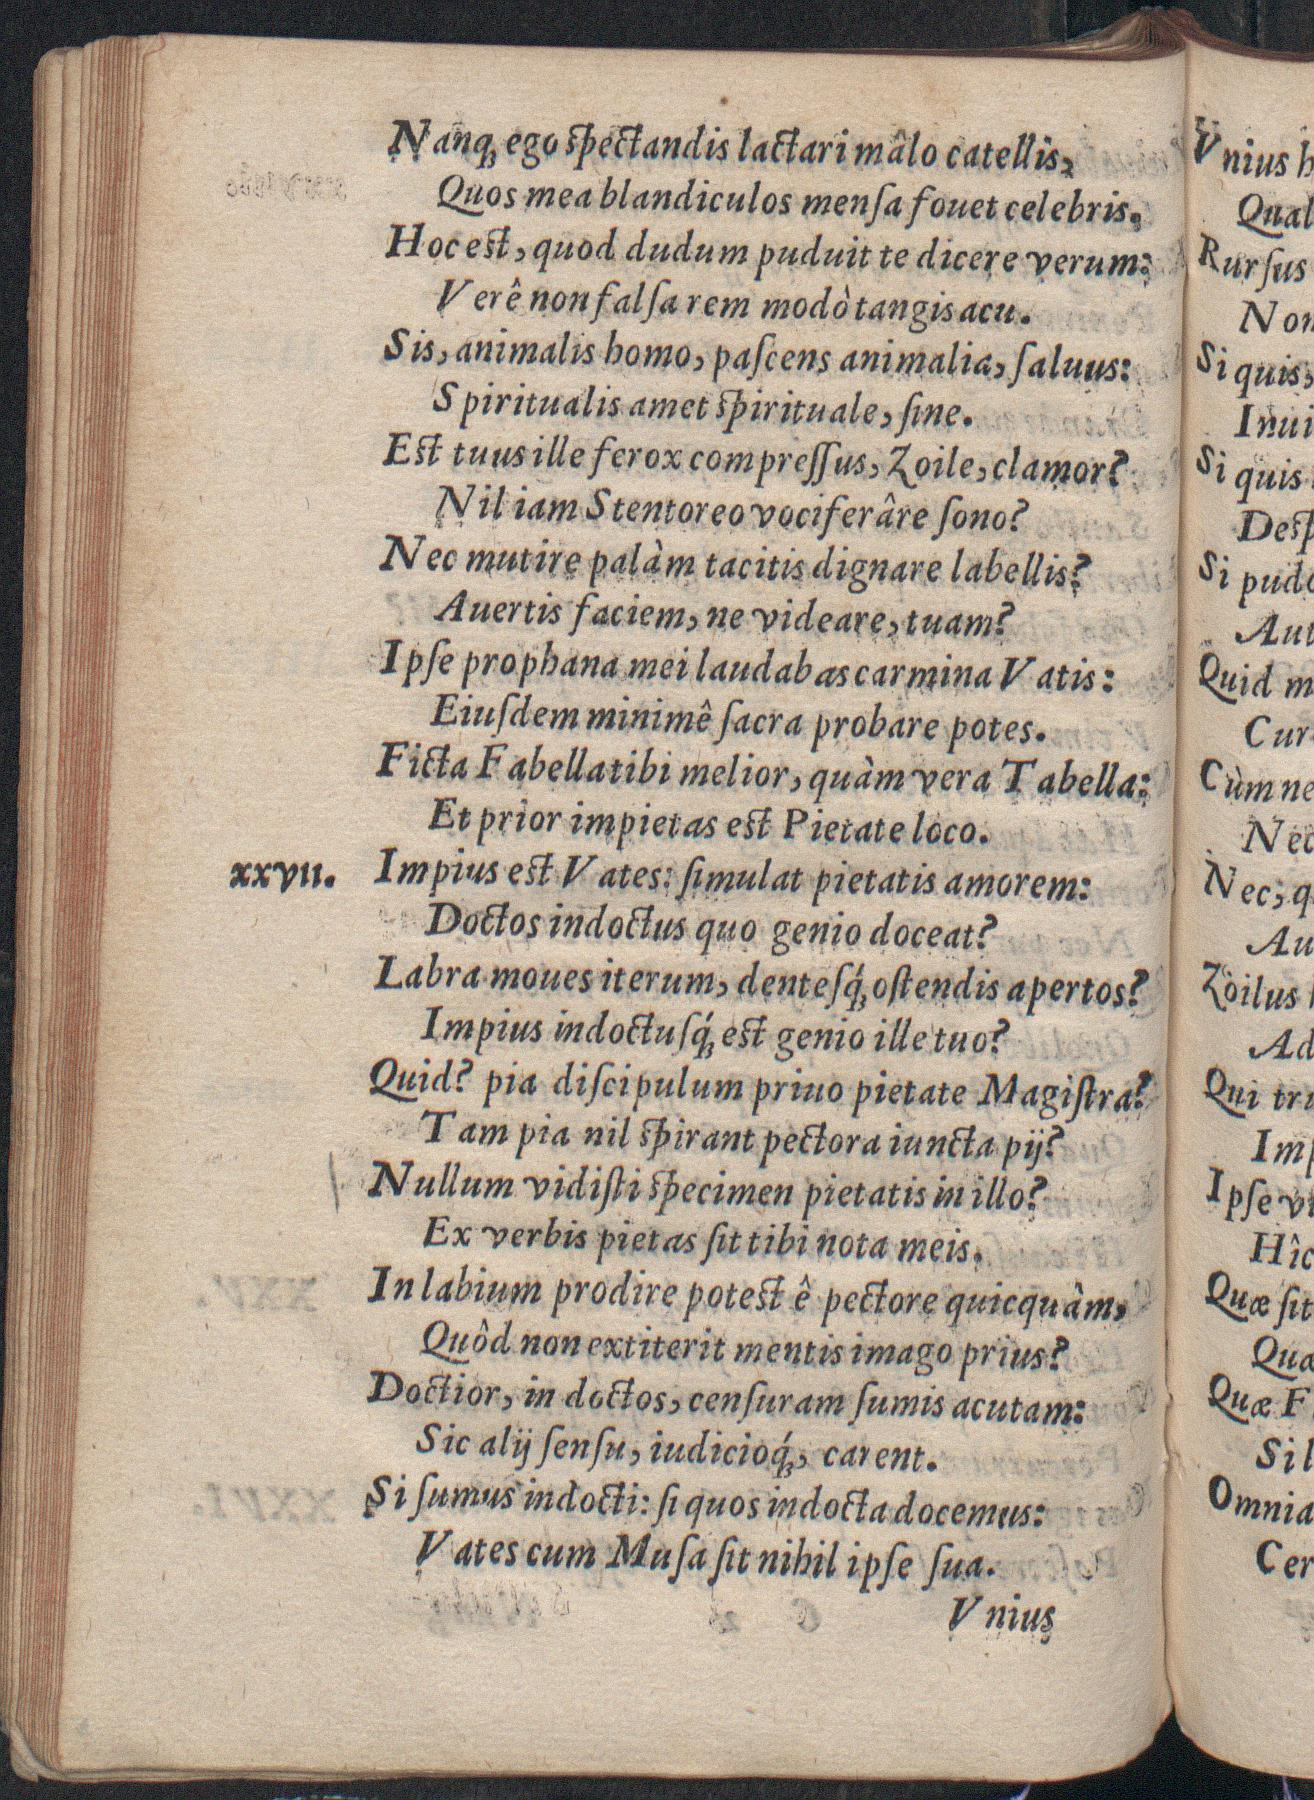 Nanq́ꝫ ego spectandis lactari mâlo catellis,
Quos mea blandiculos menſa fouet celebris.
Hoc est, quod dudum puduit te dicere verum:
Verê non falſa rem modò tangis acu.
Sis, animalis homo, paſcens animalia, ſaluus:
Spiritualis amet spirituale, ſine.
Est tuus ille ferox compreſſus, Zoile, clamor?
Nil iam Stentoreo vociferâre ſono?
Nec mutire palàm tacitis dignare labellis?
Auertis faciem, ne videare, tuam?
Ipſe prophana mei laudabas carmina Vatis:
Eiuſdem minimê ſacra probare potes.
Ficta Fabella tibi melior, quàm vera Tabella:
Et prior impietas est Pietate loco.
xxvii. Impius est Vates: ſimulat pietatis amorem:
Doctos indoctus quo genio doceat?
Labra moues iterum, denteſq́ꝫ oſtendis apertos?
Impius indoctuſq́ꝫ est genio ille tuo?
Quid? pia diſcipulum priuo pietate Magiſtra?
Tam pia nil spirant pectora iuncta pij?
Nullum vidiſti specimen pietatis in illo?
Ex verbis pietas ſit tibi nota meis.
In labium prodire potest ê pectore quicquàm,
Quôd non extiterit mentis imago prius?
Doctior, in doctos, cenſuram ſumis acutam:
Sic alij ſenſu, iudicioq́ꝫ, carent.
Si ſumus indocti: ſi quos indocta docemus:
Vates cum Muſa ſit nihil ipſe ſua.
Vnius
Vnius
Qual
Rurſus
Non
Si quis,
Inui
Si quis
Desp
Si pudo
Aut
Quid m
Cur
Cùm ne
Nec
Nec, q
Au
Zoilus
Ad
Qui tri
Imp
Ipſe vi
Hîc
Quæ ſit
Qua
Quæ F
Si l
Omnia
Cer